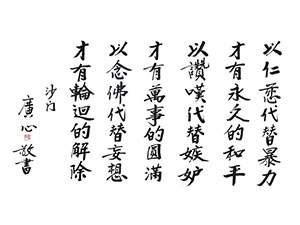 以仁慈代替暴力
才有永久的和平
以讚嘆代替嫉妒
才有萬事的圓滿
以念佛代替妄想
才有輪迴的解除
沙門
廣心敬書